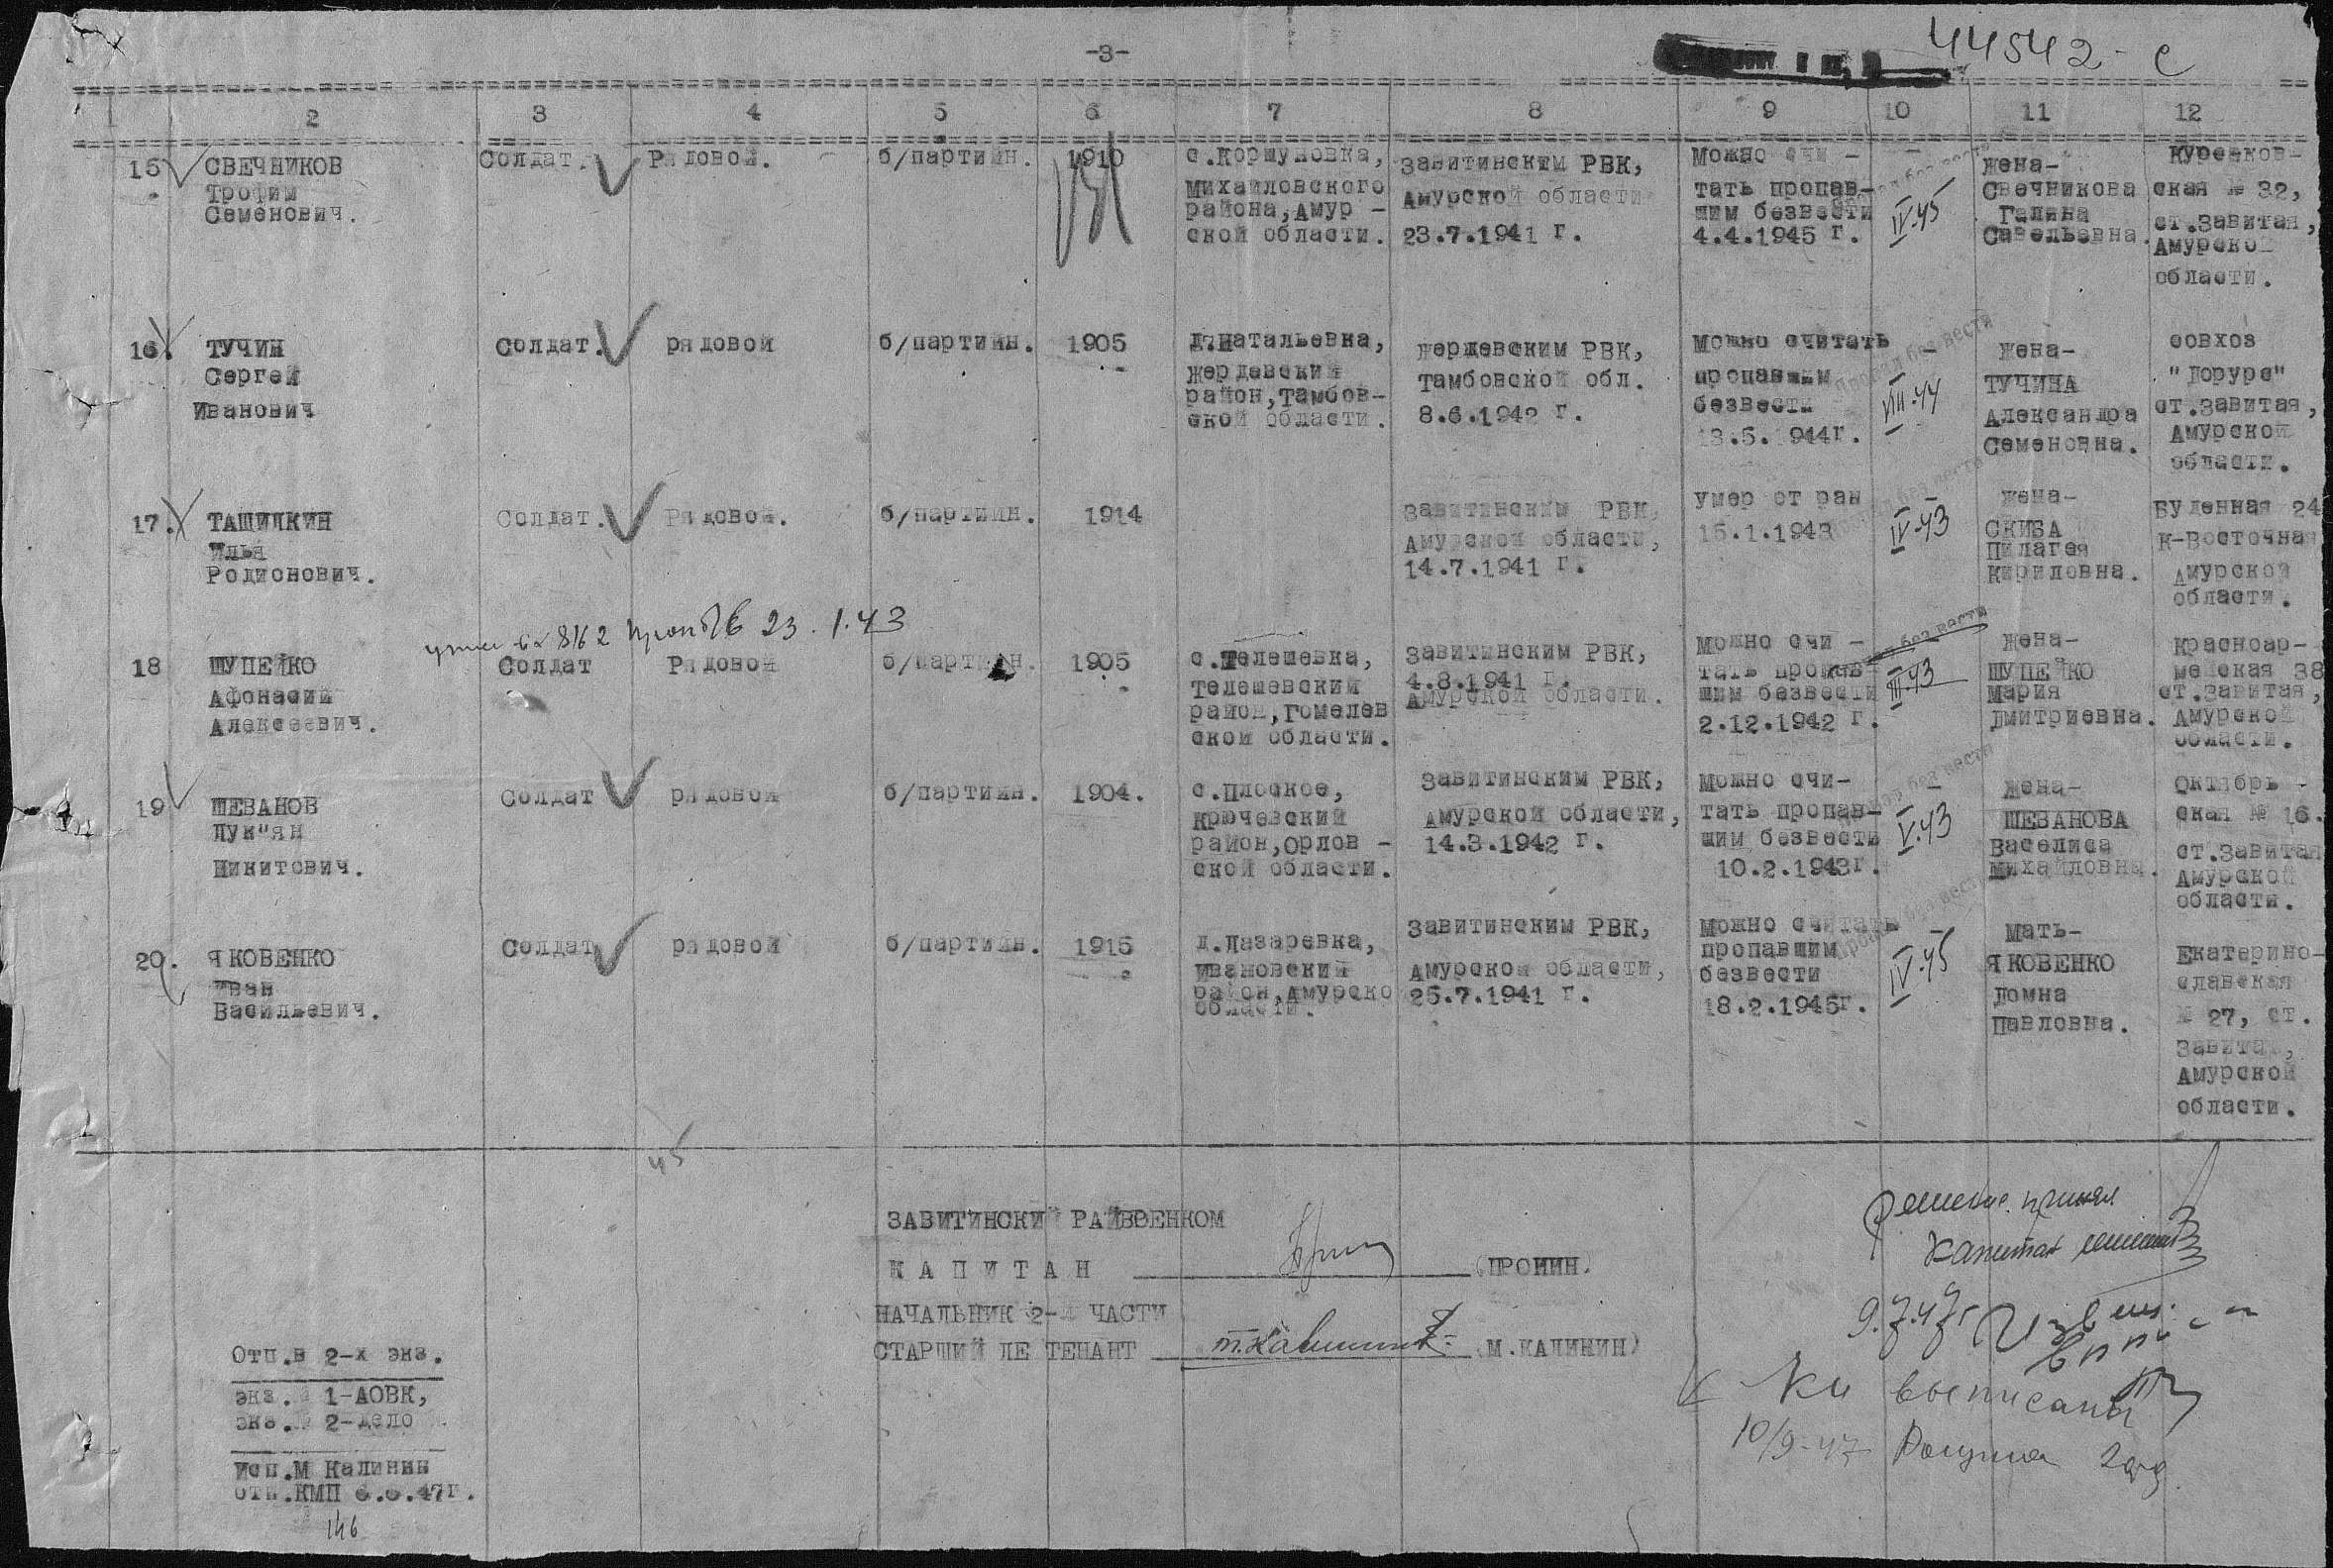 -3-
44542-с
2 3 4 5 6 7 8 9 10 11 12
15 СВЕЧНИКОВ Трофим Семенович.
Солдат.
Рядовой.
б/партийн.
1910
с.Коршуновка,
Михайловского
района,Амур -
ской области.
Завитинским РВК,
Амурской области
23.7.1941 г.
Можно счи -
тать пропав-
шим безвести
4.4.1945 г.
-
IV.45
жена-
Свечникова
Галина
Савельевна.
ская № 32,
ст.Завитая,
Амурской
области.
16. ТУЧИН
Сергей
Иванович
Солдат.
рядовой
б/партийн.
1905
д.Натальевка,
Жердевский
район,Тамбов-
ской области.
Жердевским РВК,
Тамбовской обл.
8.6.1942 г.
Можно считать
пропавшим
безвести
13.5.1944г.
-
VIII.44
жена-
ТУЧИНА
Александра
Семеновна.
совхоз
"Доруре"
ст.Завитая,
Амурской
области.
17. ТАШИЛКИН
Илья
Родионович.
Солдат.
Рядовой.
б/партийн.
1914
Завитинским РВК,
Амурской области,
14.7.1941 г.
умер от ран
15.1.1943
-
IV-43
жена-
СКИБА
Пилагея
Кириловна.
Буденная 24
К-Восточная
Амурской
области.
23.1.43
18 ШУПЕЙКО
Афонасий
Алексеевич.
Солдат
Рядовой
б/партийн.
1905
с.Телешевка,
Телешевский
район,Гомелев
ской области.
Завитинским РВК,
4.8.1941 г.
Амурской области.
Можно счи -
тать пропав-
шим безвести
2.12.1942 г.
без вести
III.43
жена-
ШУПЕЙКО
Мария
Дмитриевна.
Красноар-
мейская 38
ст.Завитая,
Амурской
области.
19 ШЕВАНОВ
Лук"ян
Никитович.
Солдат
рядовой
б/партийн.
1904.
с.Плоское,
Крючевский
район,Орлов -
ской области.
Завитинским РВК,
Амурской области,
14.3.1942 г.
Можно счи-
тать пропав-
шим безвести
10.2.1943г.
-
V.43
жена-
ШЕВАНОВА
Васелиса
Михайловна.
Октябрь -
ская № 16.
ст.Завитая
Амурской
области.
20. ЯКОВЕНКО
Иван
Васильевич.
Солдат
рядовой
б/партийн.
1915
д.Лазаревка,
Ивановский
район,Амурско
области.
Завитинским РВК,
Амурской области,
25.7.1941 г.
Можно считать
пропавшим
безвести
18.2.1945г.
-
IV.45
мать-
ЯКОВЕНКО
Домна
Павловна.
Екатерино-
славская
№ 27, ст.
Завитая,
Амурской
области.
45
ЗАВИТИНСКИЙ РАЙВОЕНКОМ
КАПИТАН (ПРОНИН)
НАЧАЛЬНИК 2-й ЧАСТИ
СТАРШИЙ ЛЕЙТЕНАНТ (М.КАЛИНИН)
Отп.в 2-х экз.
экз.№ 1-АОВК,
экз.№ 2-дело
исп.М Калинин
отп.КМП 6.6.47г.
146
Решение принял
Капитан
9.7.47г
выписаны
10/9-47